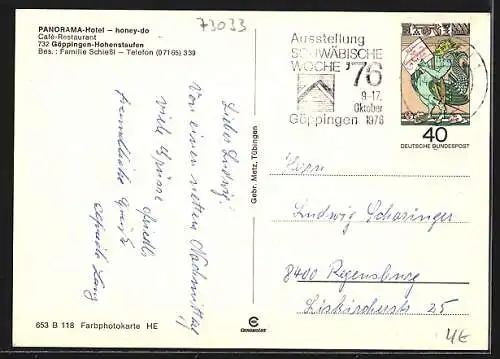 73033
PANORAMA-Hotel – honey-do
Café-Restaurant
732 Göppingen-Hohenstaufen
Bes.: Familie Schießl – Telefon (07165) 339
Ausstellung
SCHWÄBISCHE
WOCHE '76
9-17.
Oktober
Göppingen 1976
40
DEUTSCHE BUNDESPOST
Lieber Ludwig!
Von einem netten Nachmittag
viele Grüsse
freundliche Grüße
Gebr. Metz, Tübingen
Herrn
Ludwig Scharinger
8400 Regensburg
25
653 B 118 Farbphotokarte HE
4€